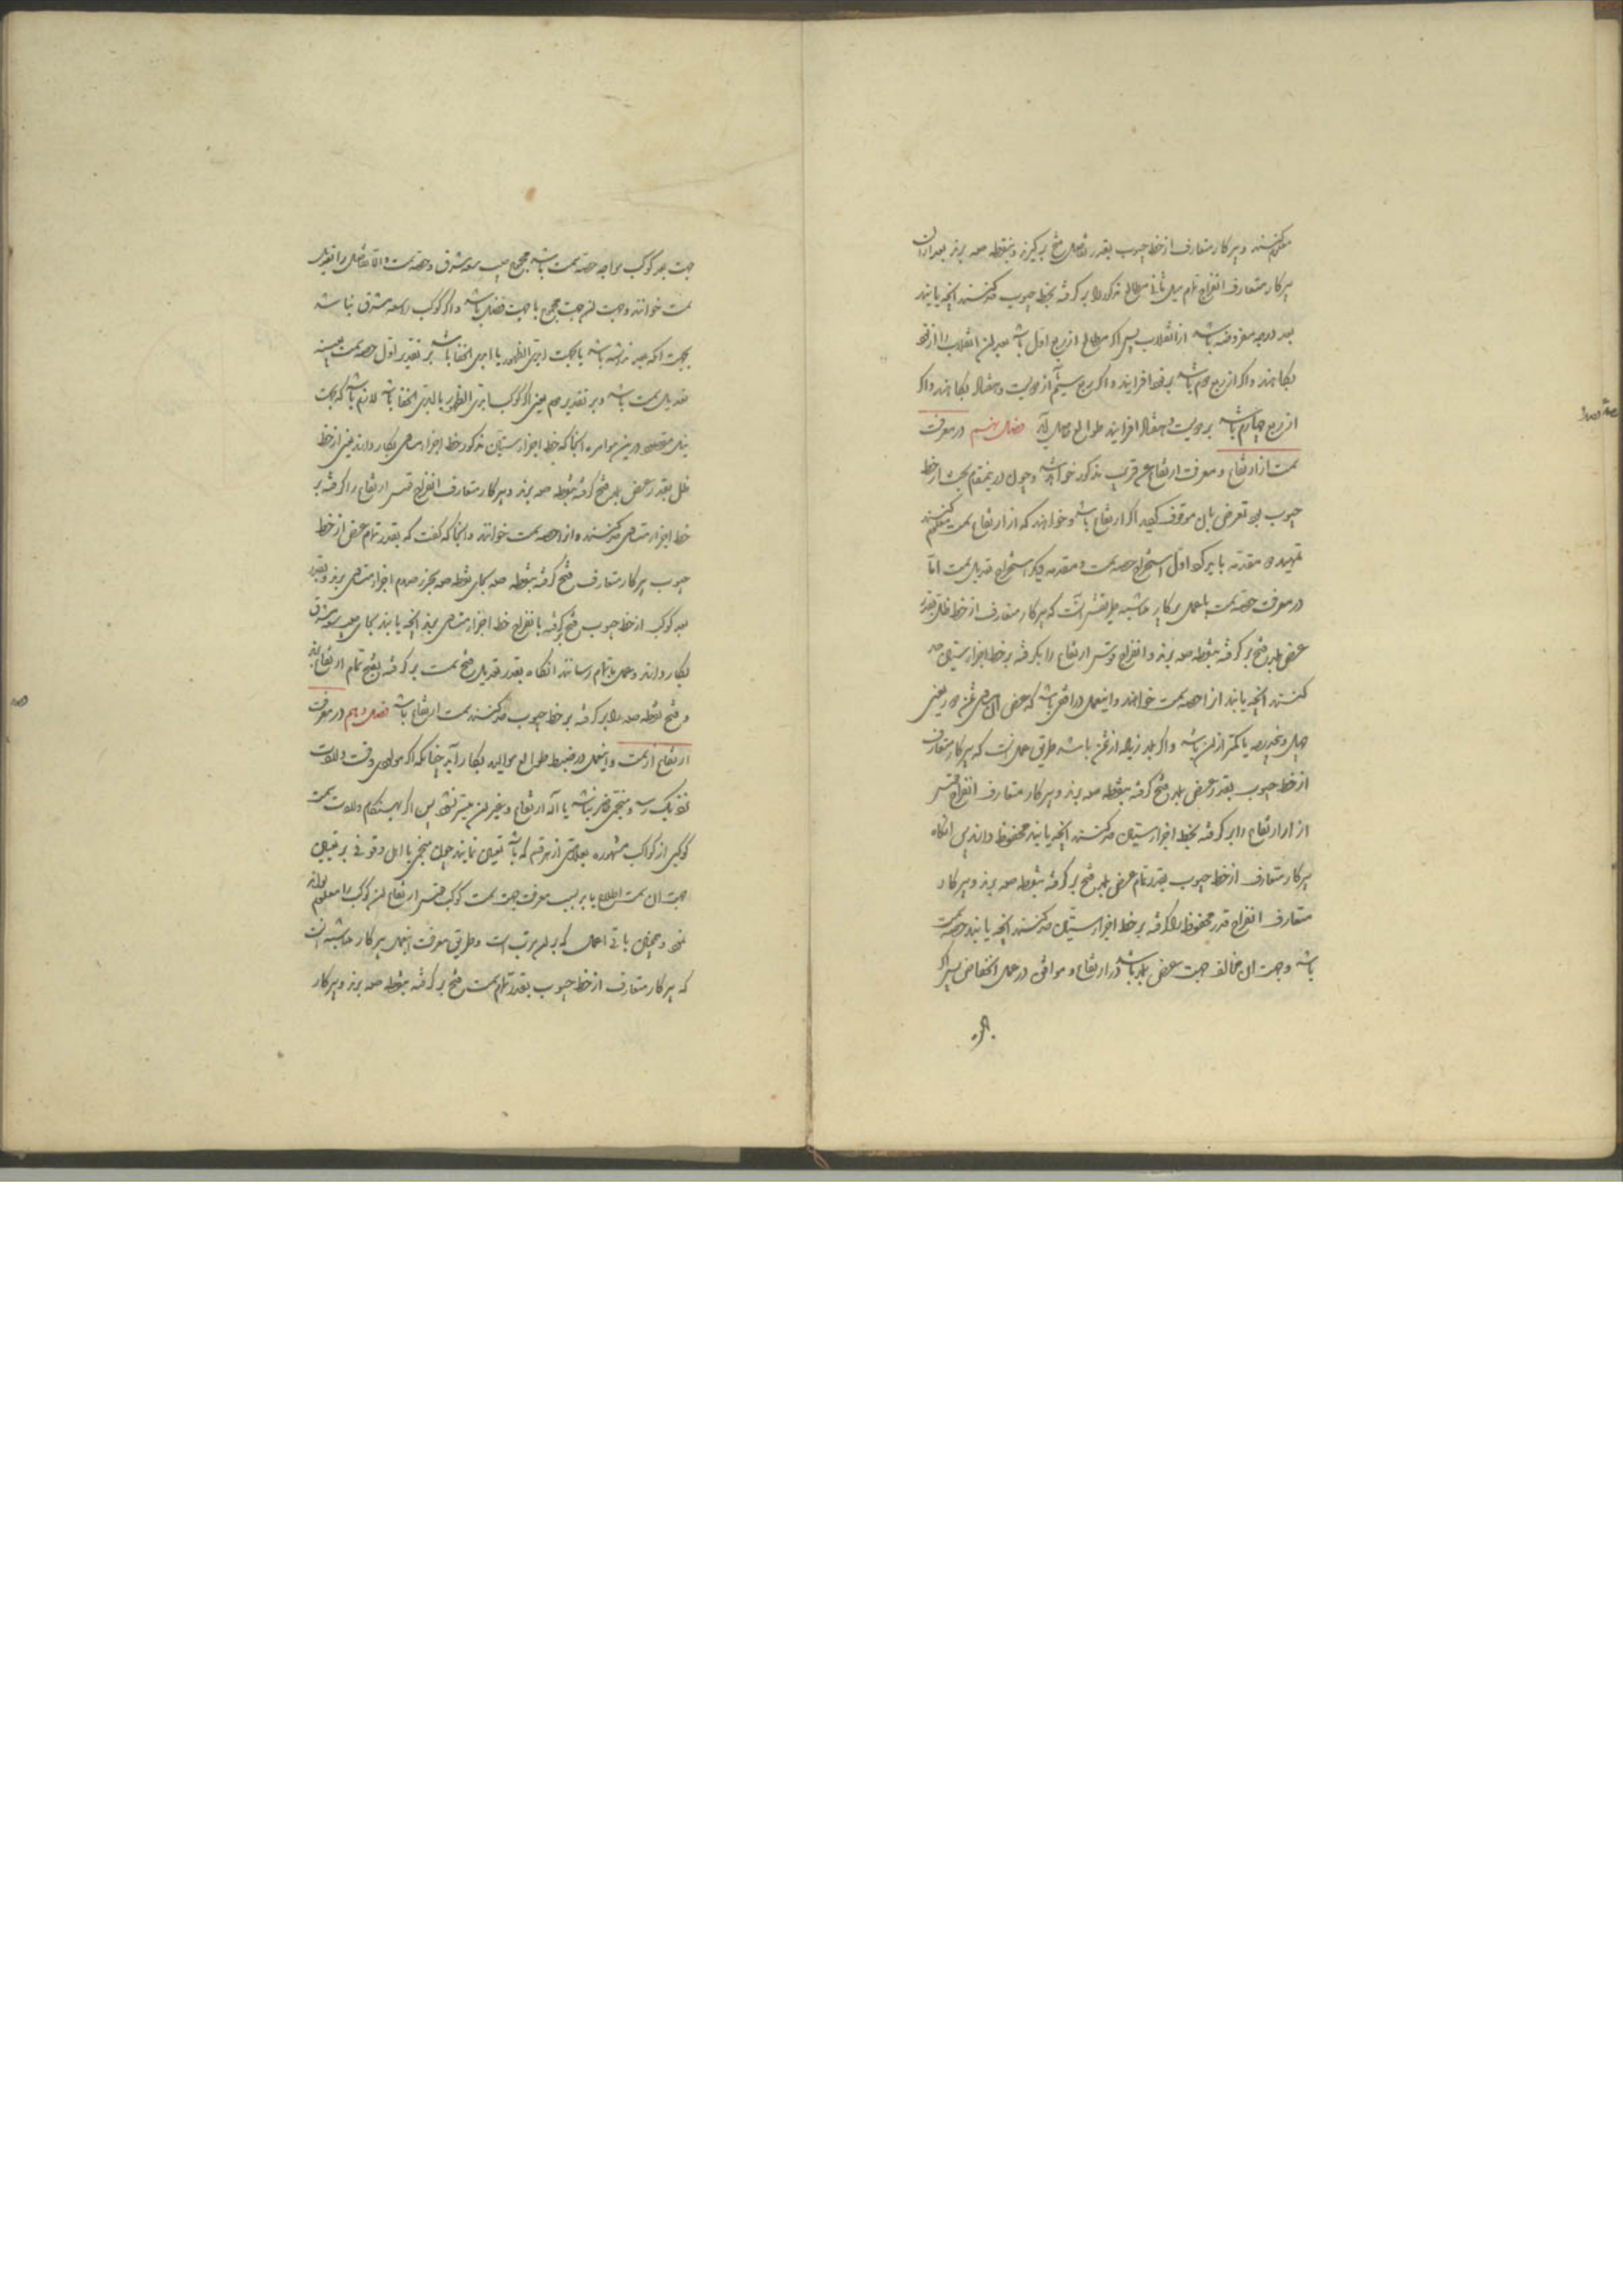 معلوم کنند و پرکار متعارف از خط جیوب بقدر تفاضل فتح بر گیرند و بنقطه صه برند بعد از ان
پرکار متعارف انفراج تمام میل ثانی مطالع مذکور را بر گرفته بخط جیوب نقل کنند انچه یابند
بعد درجه مفروضه باشد از انقلاب پس اگر مطالع از ربع اول باشد بعد ان انقلاب را از ص
بکاهند و اگر از ربع دوم باشد بر ص افزایند و اگر ربع سیم از دویست و هفتاد بکاهند و اگر
از ربع چهارم باشد بر دویست و هفتاد افزایند طوالع حاصل آید فصل نهم در معرفت
سمت از ارتفاع و معرفت ارتفاع عن قریب مذکور خواهد شد و چون درینمقام بحث از خط
جیوب بود تعرض بان موقوف کردید اگر ارتفاع باشد و خواهند که از ارتفاع سمت معلوم کنند
تمهید دو مقدمه باید کرد اول استخراج حصه سمت و مقدمه دیگر استخراج تعدیل سمت اما
در معرفت حصه سمت باعمال پرکار متناسبه طریقش انست که پرکار متعارف از خط ظل بقدر
عرض بلد فتح بر گرفته بنقطه صه برند و انفراج قوس ارتفاع را بر گرفته بر خط اجزاء ستین
کنند انچه یابند انرا حصه سمت خوانند و اینعمل در افقی باشد که عرض ان مساوی ثمن دور یعنی
چهل و پنج درجه یا کمتر از ان باشد و اگر بلد زیاده از ثمن باشد طریق عمل انست که پرکار متعارف
از خط جیوب بقدر عرض بلد فتح گرفته بنقطه صه برند و پرکار متعارف انفراج قوس
از ارتفاع را بر گرفته بخط اجزاء ستین نقل کنند انچه یابند محفوظ دارند پس انگاه
پرکار متعارف از خط جیوب بقدر تمام عرض بلد فتح بر گرفته بنقطه صه برند و پرکار
متعارف انفراج قدر محفوظ را گرفته بر خط اجزاء ستین نقل کنند انچه یابند حصه سمت
باشد و جهت ان مخالف جهت عرض بلد باشد در ارتفاع و موافق در عمل انخفاض پس اگر
جهت بعد کوکب موافق حصه سمت باشد مجموع جیب سعه مشرق و حصه سمت و الا تفاضل را تعدیل
سمت خوانند و جهت ان جهت مجموع یا جهت فضل باشد و اگر کوکب را سعه مشرق نباشد
بجهت انکه بعد نداشته باشد یا بجهت ابدی الظهور یا ابدی الخفا باشد بر تقدیر اول حصه سمت بعینه
تعدیل سمت باشد و بر تقدیر دوم یعنی اگر کوکب ابدی الظهور یا ابدی الخفا باشد لازم باشد که بجهت
درین موامره انجا که خط اجزاء ستین مذکور خط اجزاء متساوی بکار دارند یعنی از خط
ظل بقدر عرض بلد فتح گرفته بنقطه صه برند و پرکار متعارف انفراج قوس ارتفاع را گرفته بر
خط اجزاء متساوی نقل کنند و انرا حصه سمت خوانند و انجا که گفت که بقدر تمام عرض از خط
جیوب پرکار متعارف فتح گرفته بنقطه صه بجای نقطه صه بجزو صدم اجزاء متساوی برند و بقدر
بعد کوکب از خط جیوب فتح بر گرفته بانفراج خط اجزاء متساوی برند انچه یابند بجای جیب سعه مشرق
بکار دارند و عمل باتمام رسانند انگاه بقدر تعدیل فتح سمت بر گرفته بفتح تمام ارتفاع برند
و فتح نقطه صه را بر گرفته بر خط جیوب نقل کنند سمت ارتفاع باشد فصل دهم در معرفت
ارتفاع از سمت و اینعمل در ضبط طوالع موالید بکار آید چنانکه اگر مولودی وقت ولادت
نزدیک رسد و منجمی حاضر نباشد یا آله ارتفاع و غیر ان میسر نشود پس اگر هنگام ولادت سمت
کوکبی از کواکب مشهوره بعلامتی از هر قسم که باشد تعیین نمایند چون منجمی یا اهل وقوفی بر تعیین
جهت ان سمت اطلاع یابد بسبب معرفت جهت سمت کوکب قوس ارتفاع ان کوکب را معلوم تواند
نمود و همچنین باقی اعمال که بران مرتب است و طریق معرفت اینعمل بپرکار متناسبه انست
که پرکار متعارف از خط جیوب بقدر تمام سمت فتح بر گرفته بنقطه صه برند و پرکار